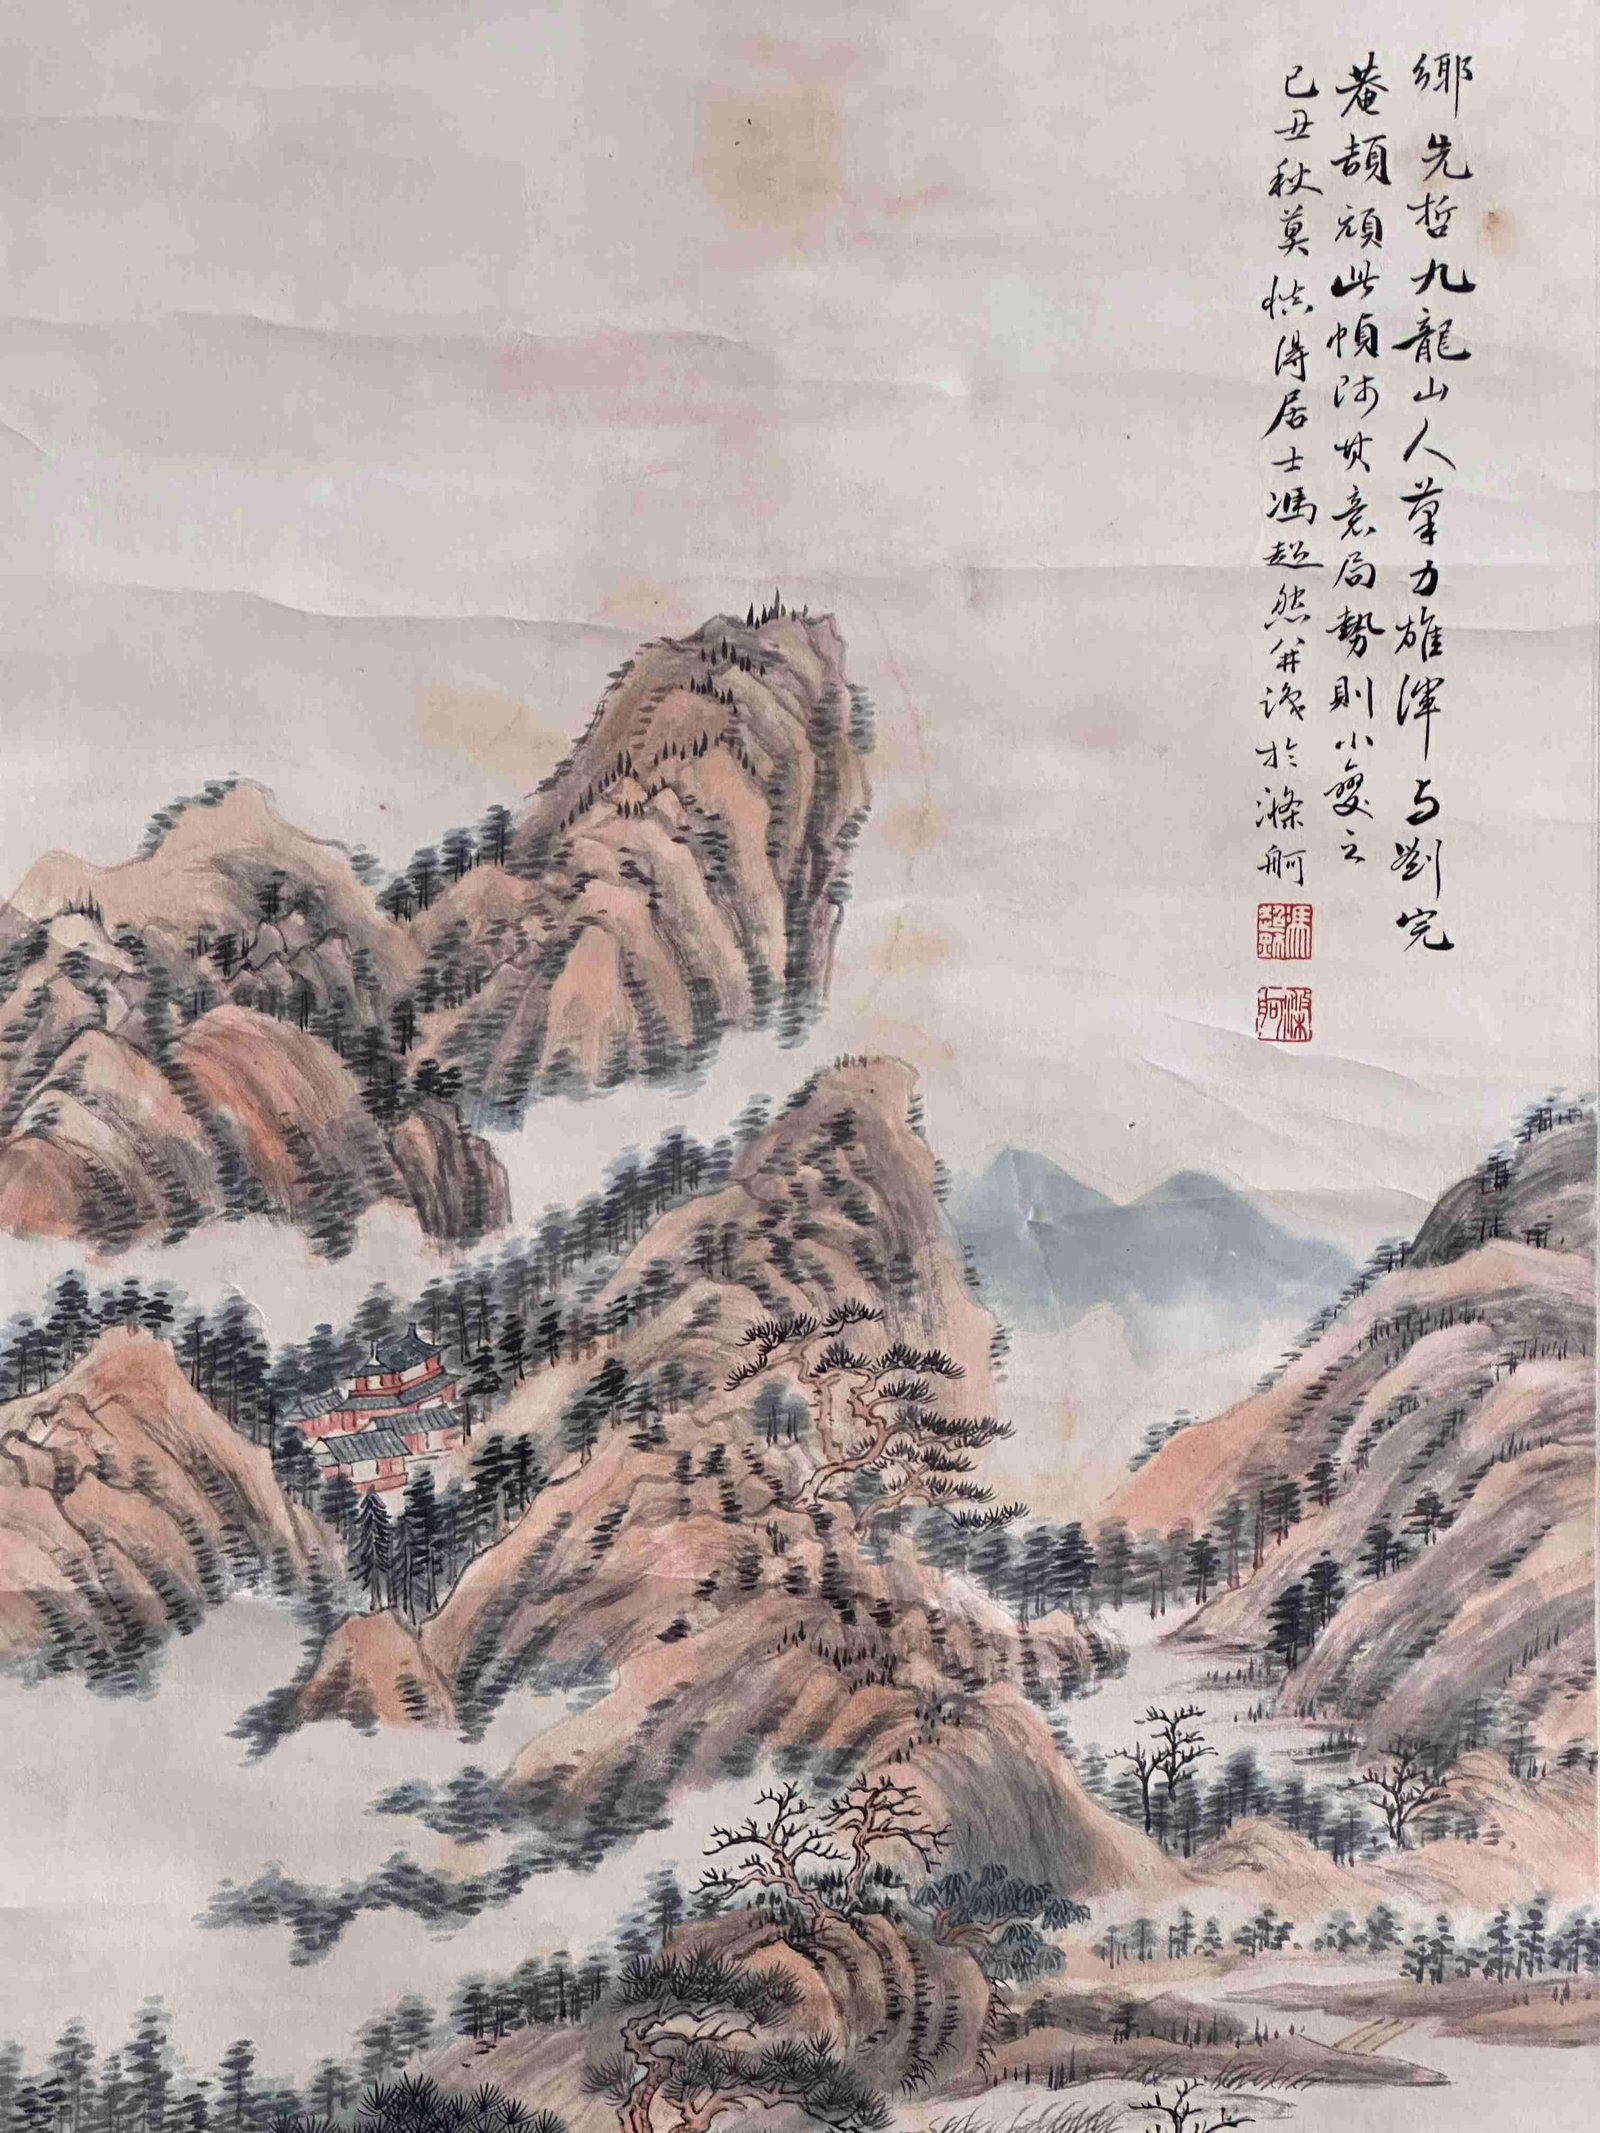 鄉先哲九龍山人筆力雄渾与劉完
菴頡頏此幀師其意局勢則小變之
己丑秋莫愼得居士馮超然并識於滌舸
馮超然
滌舸